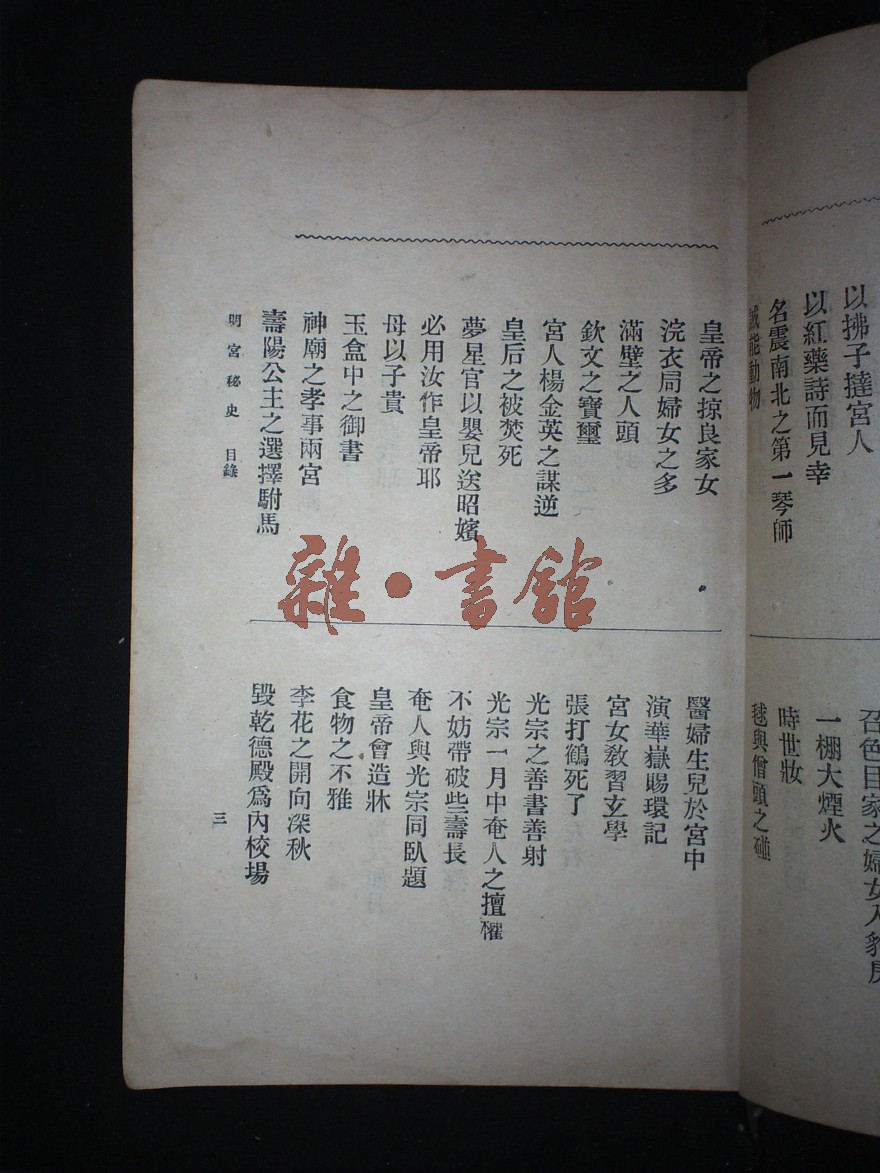 以拂子撻宮人
以紅藥詩而見幸
名震南北之第一琴師
誠能動物
召色目家之婦女入豹房
一棚大煙火
時世妝
毬與僧頭之碰
皇帝之掠良家女
浣衣局婦女之多
滿壁之人頭
欽文之寶璽
宮人楊金英之謀逆
皇后之被焚死
夢星官以嬰兒送昭嬪
必用汝作皇帝耶
母以子貴
玉盒中之御書
神廟之孝事兩宮
壽陽公主之選擇駙馬
醫婦生兒於宮中
演華嶽賜環記
宮女敎習玄學
張打鶴死了
光宗之善書善射
光宗一月中奄人之擅權
不妨帶破些壽長
奄人與光宗同臥題
皇帝會造牀
食物之不雅
李花之開向深秋
毀乾德殿爲內校場
明宮秘史 目錄
三
雜·書館